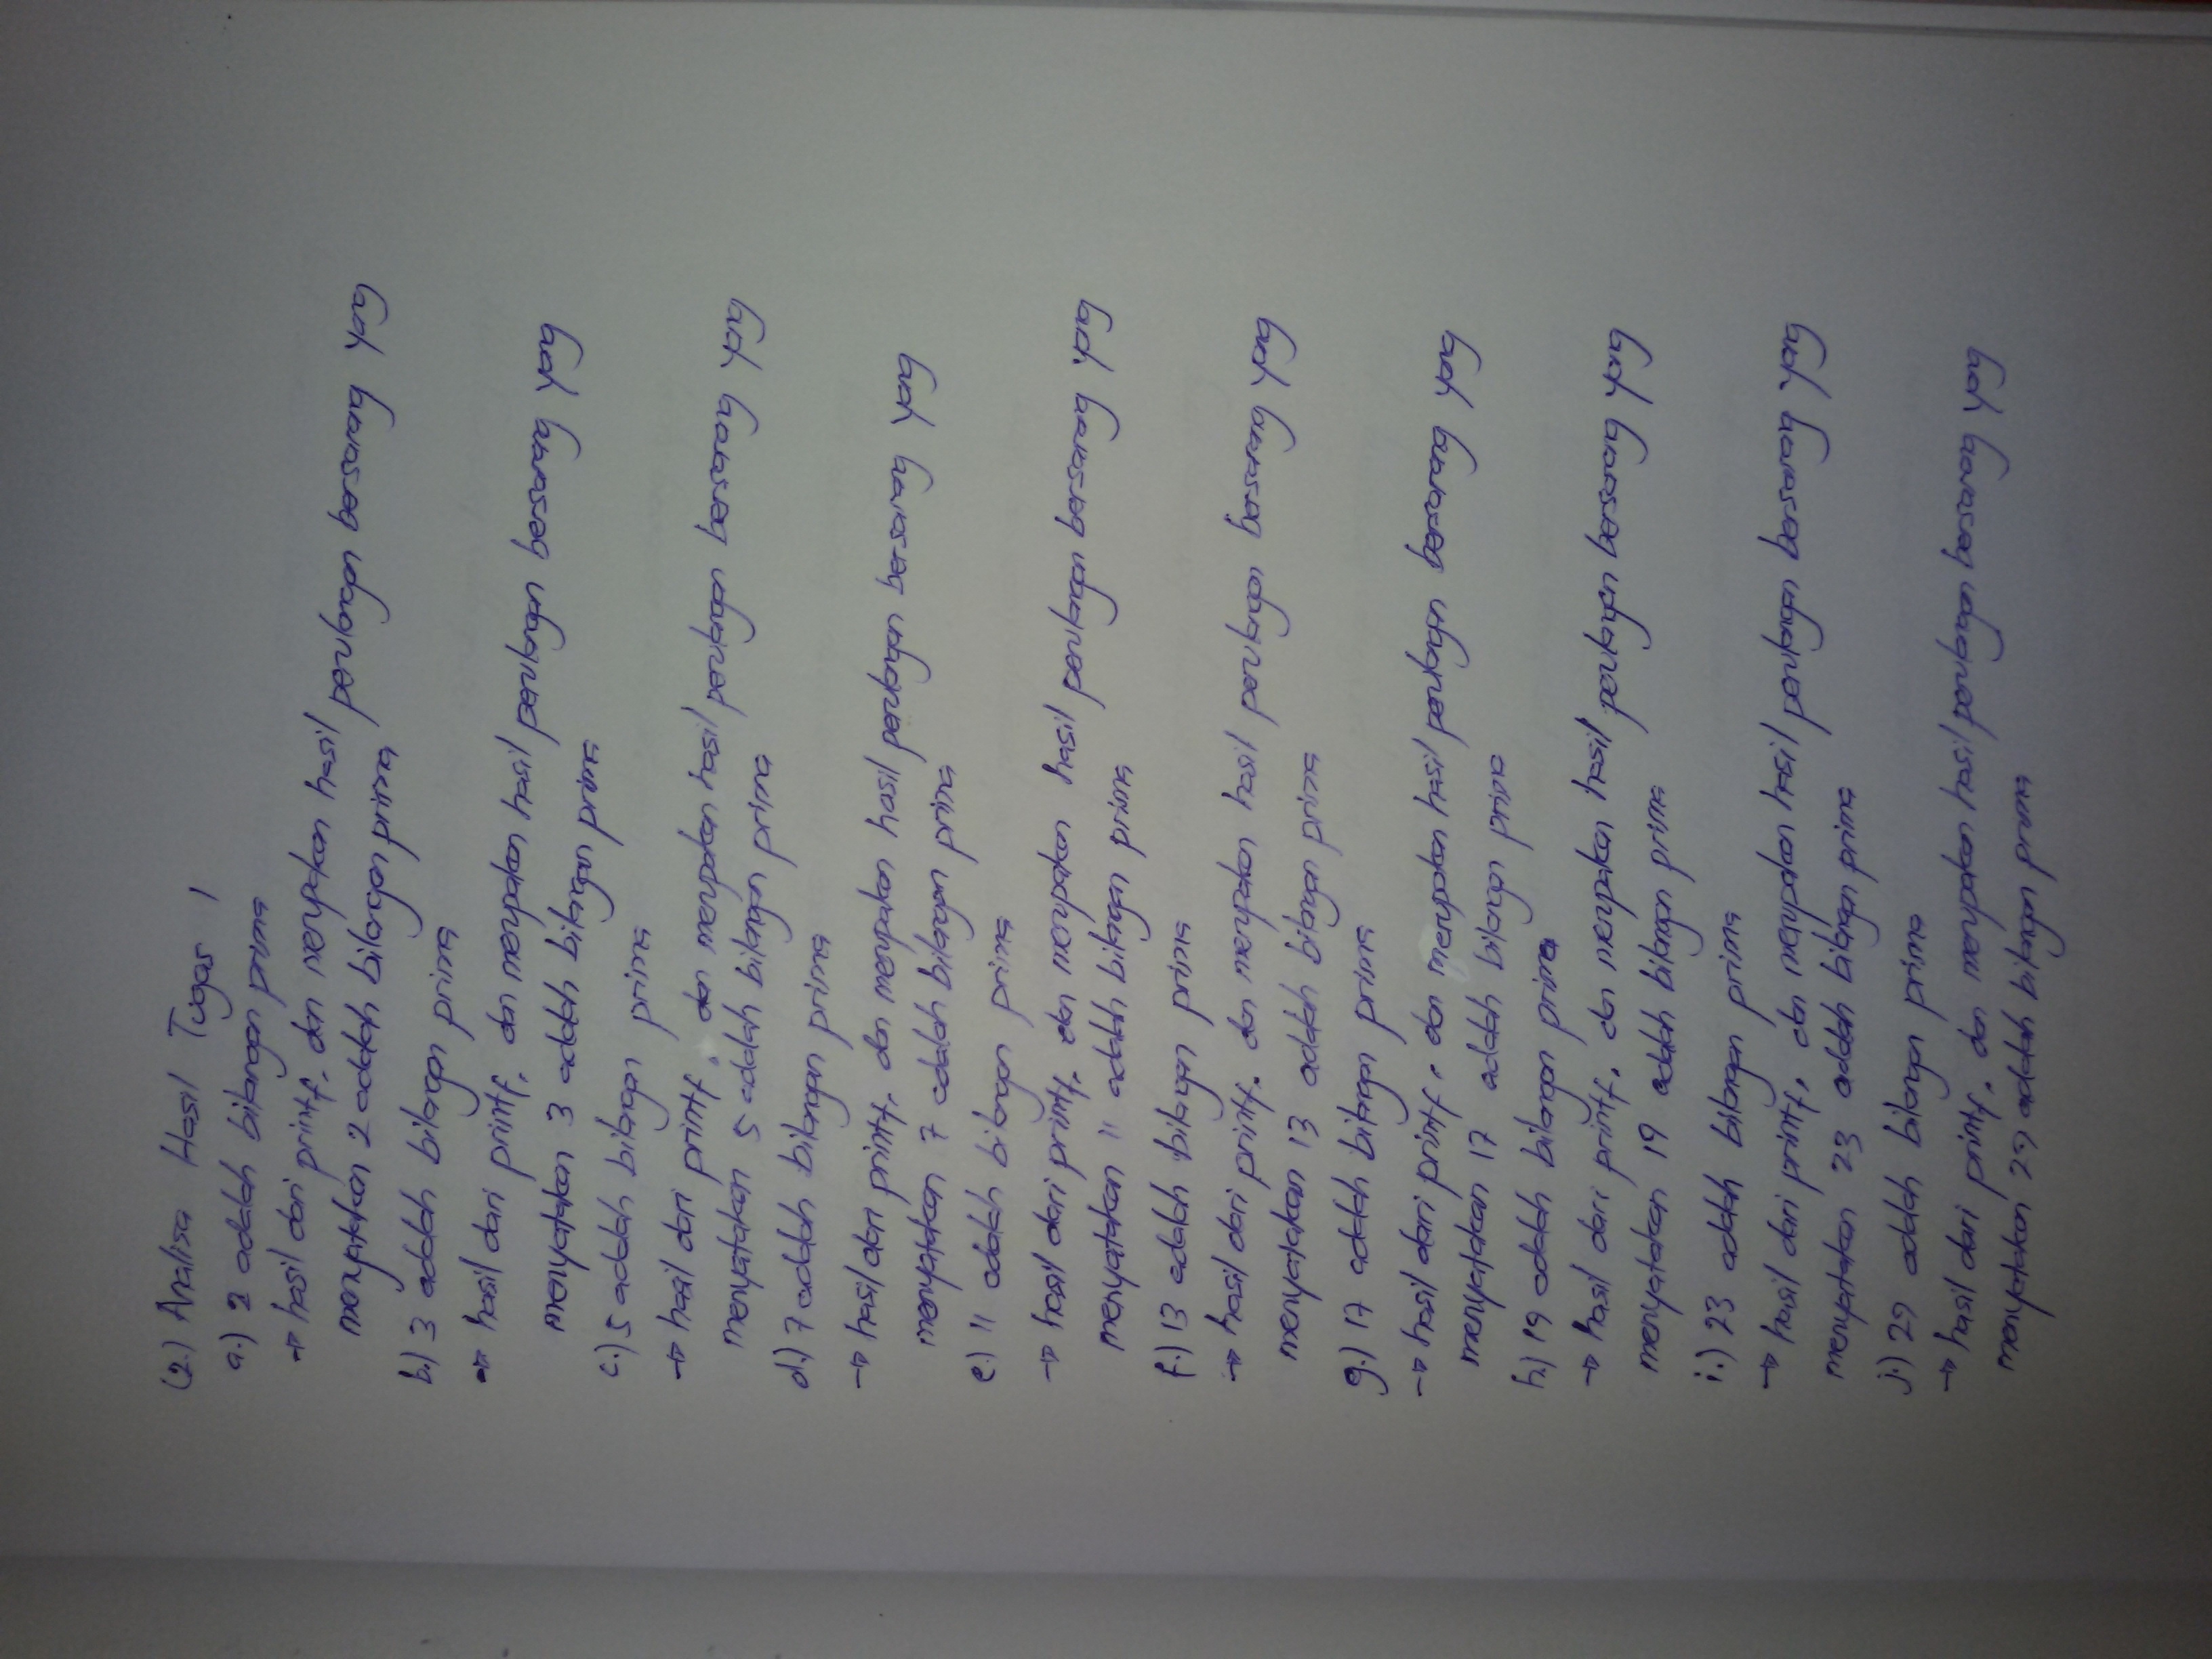 (2.) Analisa Hasil Tugas 1
a.) 2 adalah bilangan prima
→ hasil dari printf, dan merupakan hasil perulangan bersarang yang
menyatakan 2 adalah bilangan prima
b.) 3 adalah bilangan prima
→ hasil dari printf, dan merupakan hasil perulangan bersarang yang
menyatakan 3 adalah bilangan prima
c.) 5 adalah bilangan prima
→ hasil dari printf, dan merupakan hasil perulangan bersarang yang
menyatakan 5 adalah bilangan prima
d.) 7 adalah bilangan prima
→ hasil dari printf, dan merupakan hasil perulangan bersarang yang
menyatakan 7 adalah bilangan prima
e.) 11 adalah bilangan prima
→ hasil dari printf, dan merupakan hasil perulangan bersarang yang
menyatakan 11 adalah bilangan prima
f.) 13 adalah bilangan prima
→ hasil dari printf, dan merupakan hasil perulangan bersarang yang
menyatakan 13 adalah bilangan prima
g.) 17 adalah bilangan prima
→ hasil dari printf, dan merupakan hasil perulangan bersarang yang
menyatakan 17 adalah bilangan prima
h.) 19 adalah bilangan prima
→ hasil dari printf, dan merupakan hasil perulangan bersarang yang
menyatakan 19 adalah bilangan prima
i.) 23 adalah bilangan prima
→ hasil dari printf, dan merupakan hasil perulangan bersarang yang
menyatakan 23 adalah bilangan prima
j.) 29 adalah bilangan prima
→ hasil dari printf, dan merupakan hasil perulangan bersarang yang
menyatakan 29 adalah bilangan prima